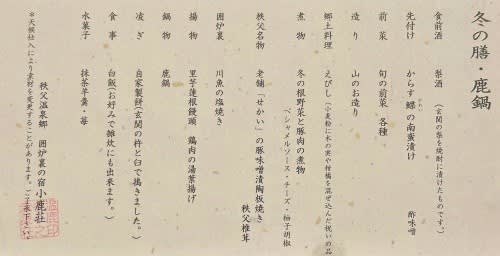 冬の膳・鹿鍋
食前酒　梨酒（玄関の梨を焼酎に漬けたものです。）
先付け　からす鰈の南蛮漬け　酢味噌
かれい
前菜　旬の前菜　各種
造り　山のお造り
郷土料理　えびし「小麦粉に木の実や柑橘を混ぜ込んだ祝いの品
煮物　冬の根野菜と豚肉の煮物
ベシャメルソース・チーズ・柚子胡椒
秩父名物　老舗「せかい」の豚味噌漬陶板焼き
秩父椎茸
囲炉裏　川魚の塩焼き
揚物　里芋蓮根饅頭　鶏肉の湯葉揚げ
鍋物　鹿鍋
凌ぎ　自家製餅（玄関の杵と臼で搗きました。）
食事　白飯（お好みで雑炊にも出来ます。）
水菓子　抹茶羊羹・苺
秩父温泉郷　囲炉裏の宿　小鹿荘
＊天候仕入により素材を変更することがあります。ご了承下さい。